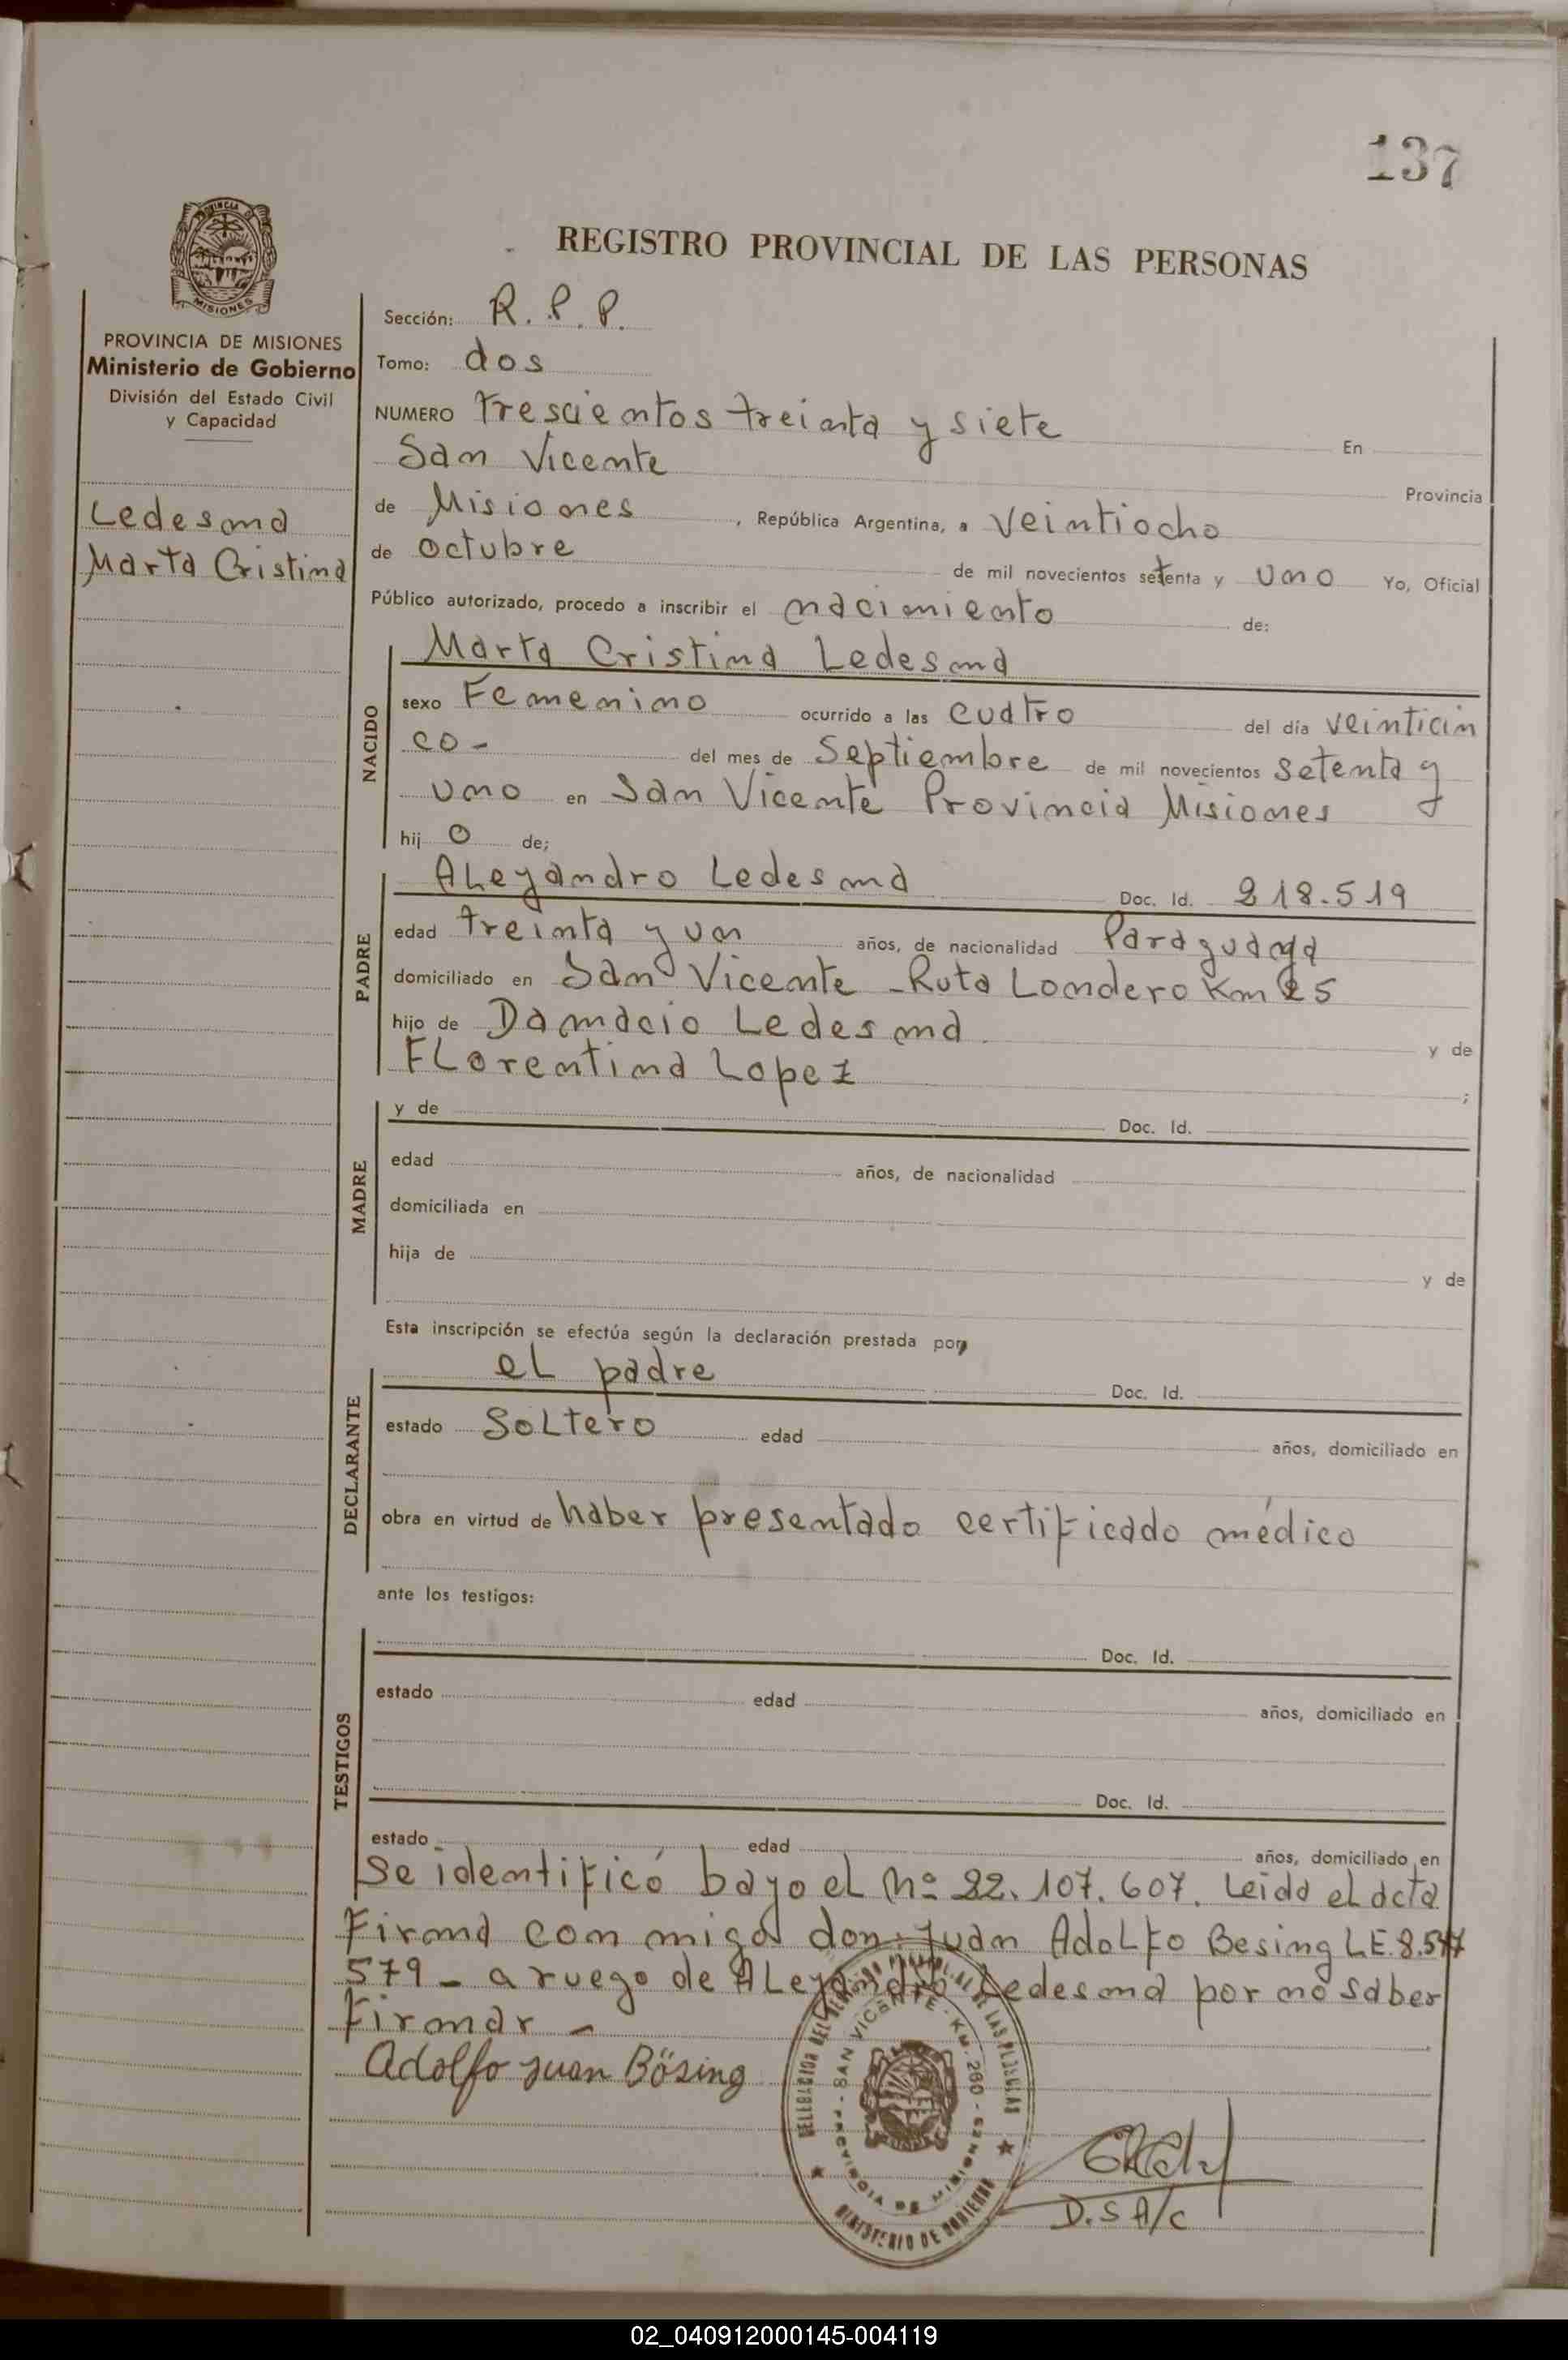 137
PROVINCIA DE
MISIONES
PROVINCIA DE MISIONES
Ministerio de Gobierno
División del Estado Civil
y Capacidad
Ledesma
Marta Cristina
REGISTRO PROVINCIAL DE LAS PERSONAS
Sección: R. P. P.
Tomo: dos
NUMERO trescientos treinta y siete En
San Vicente Provincia
de Misiones, República Argentina, a veintiocho
de octubre de mil novecientos setenta y uno Yo, Oficial
Público autorizado, procedo a inscribir el nacimiento de:
NACIDO
Marta Cristina Ledesma
sexo Femenino ocurrido a las cuatro del día veinticin
co - del mes de Septiembre de mil novecientos setenta y
uno en San Vicente Provincia Misiones
hij o de;
PADRE
ALeyandro Ledesma Doc. Id. 218.519
edad treinta y un años, de nacionalidad Paraguaya
domiciliado en San Vicente - Ruta Londero Km 25
hijo de Damacio Ledesma y de
FLorentina Lopez ;
MADRE
y de Doc. Id.
edad años, de nacionalidad
domiciliada en
hija de y de
Esta inscripción se efectúa según la declaración prestada por
DECLARANTE
eL padre Doc. Id.
estado SoLtero edad años, domiciliado en
obra en virtud de haber presentado certificado médico
ante los testigos:
TESTIGOS
Doc. Id.
estado edad años, domiciliado en
Doc. Id.
estado edad años, domiciliado en
Se identificó bayo eL Nº 22.107.607. Leida eL acta
Firma con migo don: Juan AdoLfo Besing L.E. 8.547
579 - a ruego de ALeyandro Ledesma por no saber
Firmar -
Adolfo Juan Bösing
DELEGACION DEL REGISTRO PROVINCIAL DE LAS PERSONAS
SAN VICENTE - KM. 260 -
PROVINCIA DE MISIONES
MINISTERIO DE GOBIERNO
D.S A/C
02_040912000145-004119